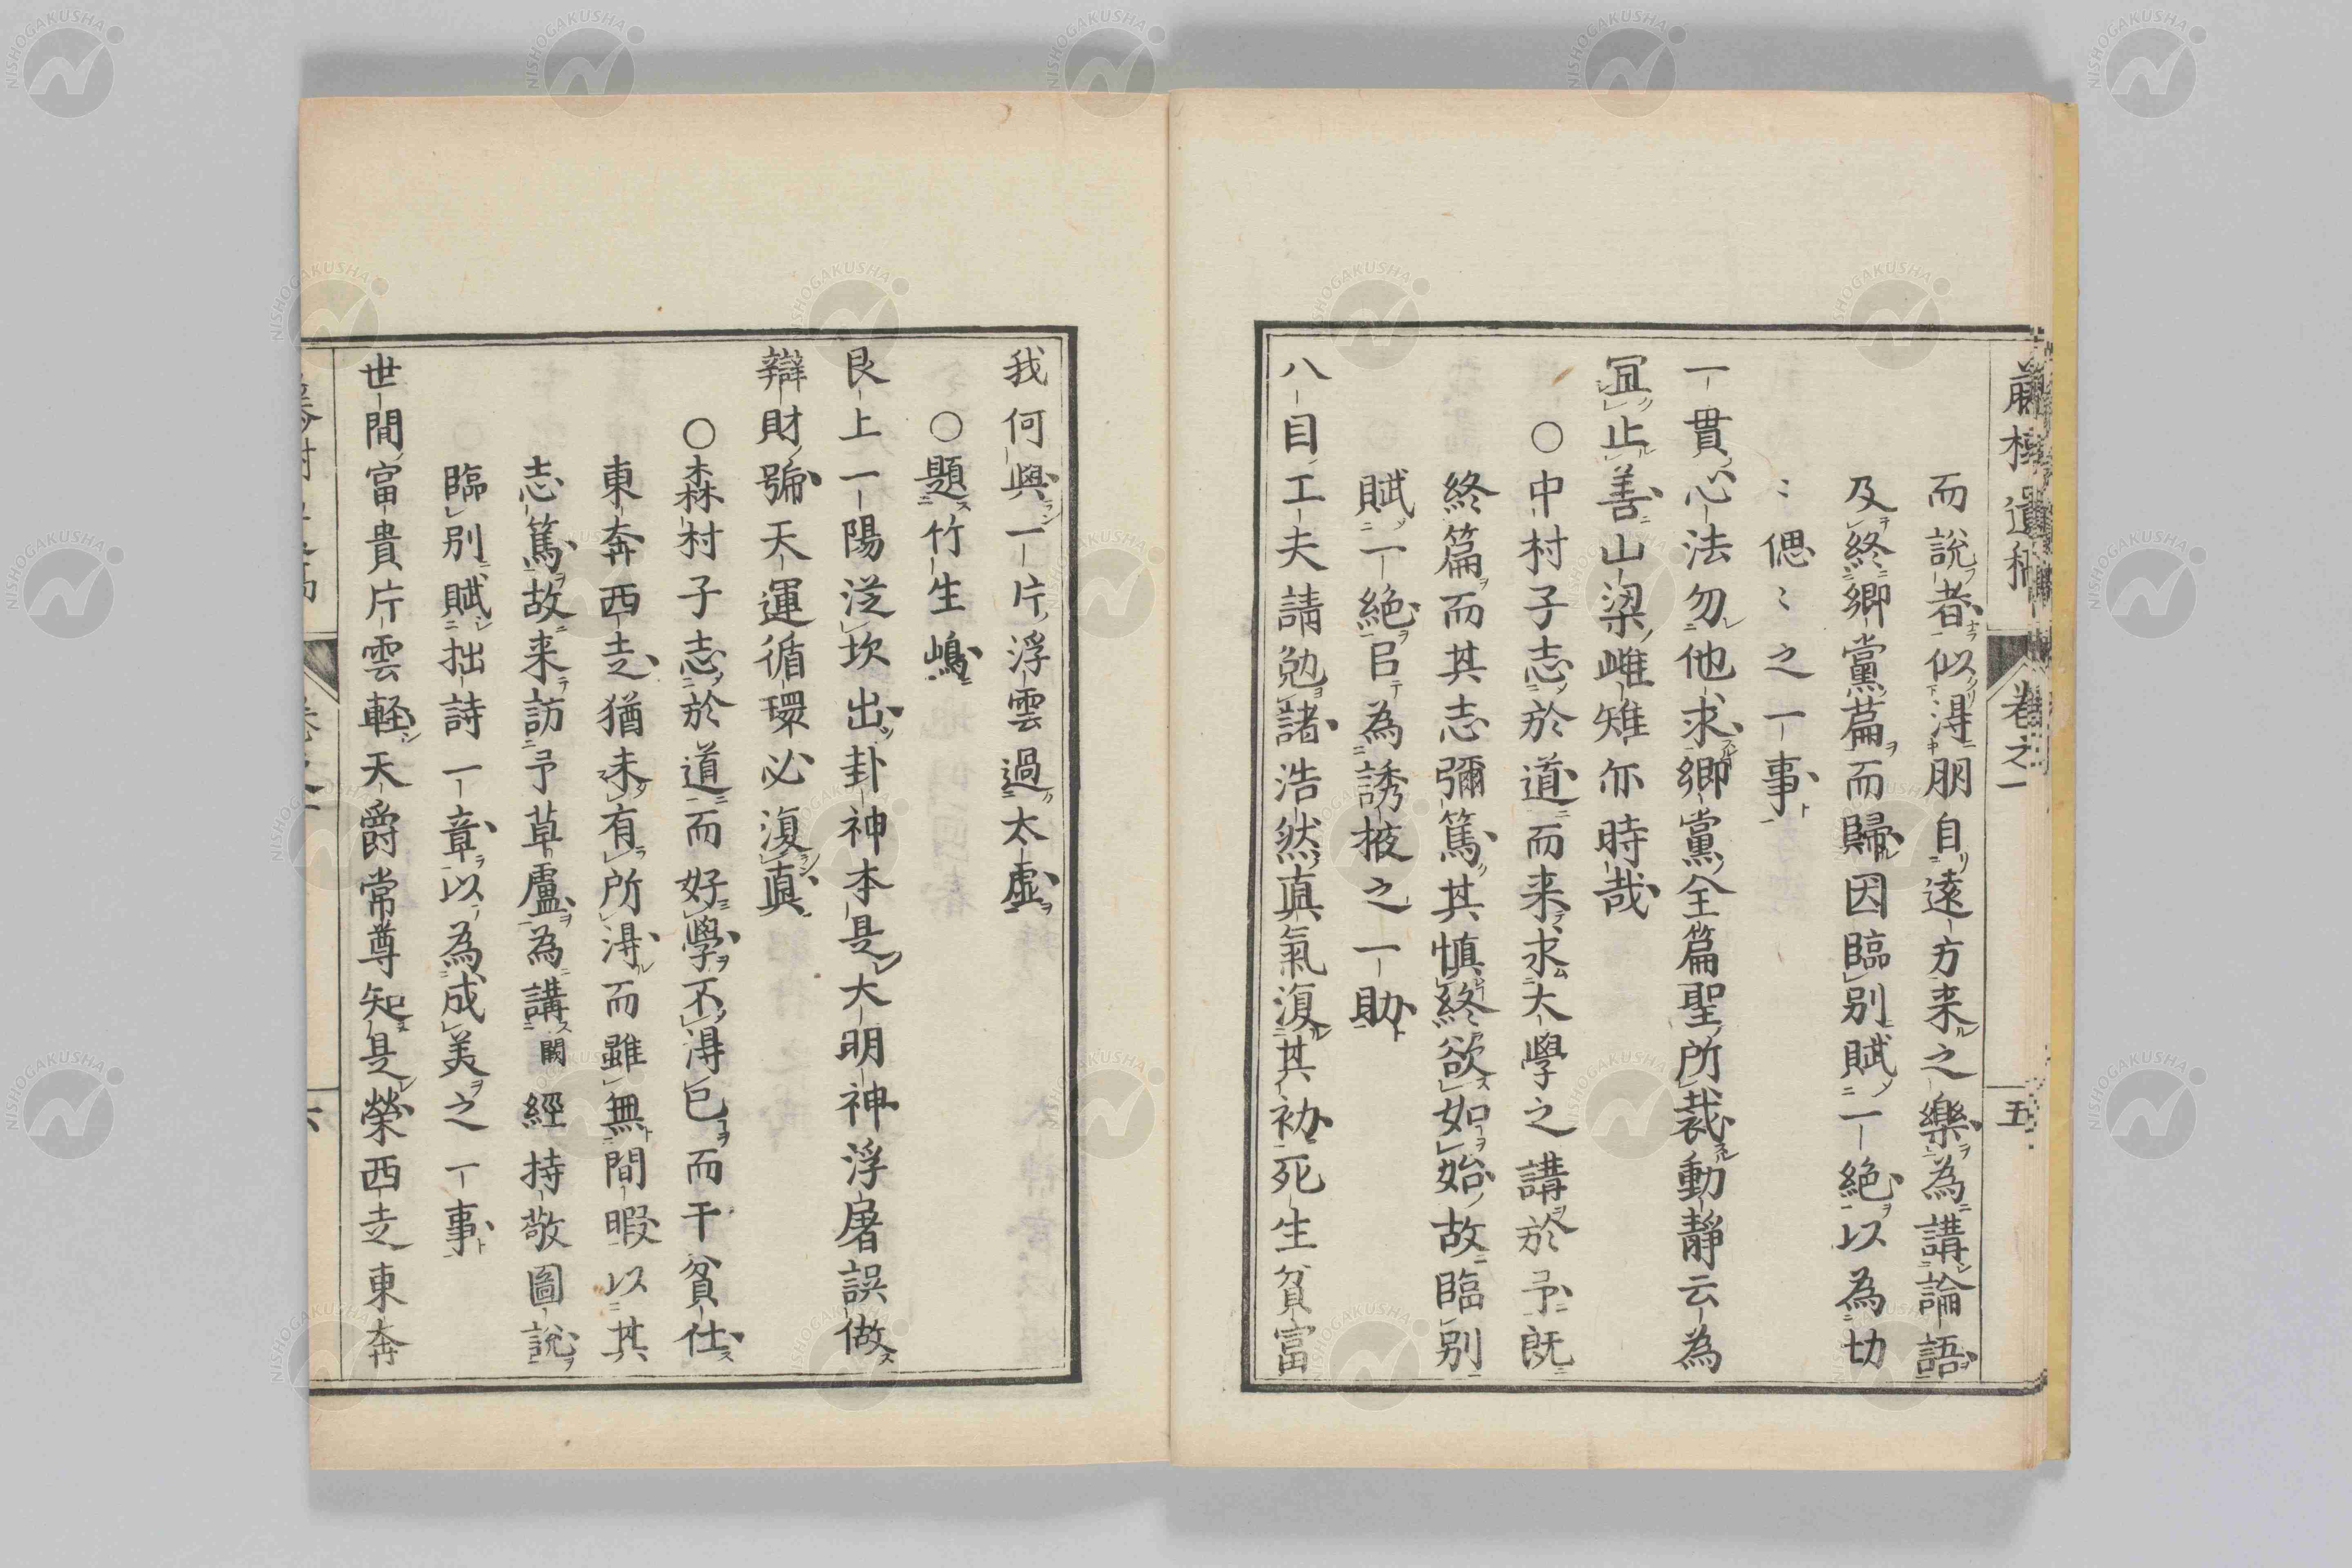 而說者似淂朋自遠方来之樂為講論語
及終鄉黨篇而歸因臨別賦一絕以為切
〻偲〻之一事
一貫心法勿他求鄉黨全篇聖所裁動靜云為
冝止善山梁雌雉亦時哉
〇中村子志於道而来求大學之講於予既
終篇而其志彌篤其慎終欲如始故臨別
賦一絕㠯為誘掖之一助
八目工夫請勉諸浩然真氣復其初死生貧富
卷之一
五
我何與一片浮雲過太虛
〇題竹生嶋
艮上一陽泛坎出卦神本是大明神浮屠誤做
辯財號天運循環必復真
〇森村子志於道而好學不淂已而干貧仕
東奔西走猶未有所淂而雖無間暇以其
志篤故来訪予草廬為講闕經持敬圖說
臨別賦拙詩一章以為成美之一事
世間富貴片雲軽天爵常尊知是榮西走東奔